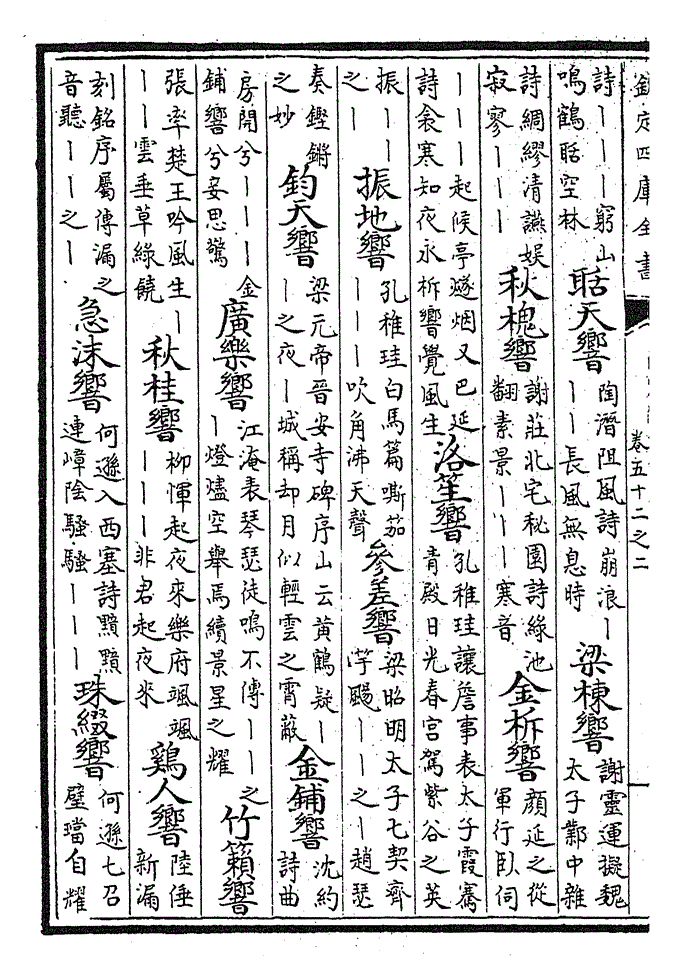 欽定四庫全書 卷五十二之二
詩｜｜｜窮山鳴鶴聒空林 聒天響 陶潛阻風詩崩浪｜｜｜長風無息時 梁棟響 謝靈運擬魏太子鄴中雜
詩綢繆清讌娛寂寥｜｜｜ 秋槐響 謝莊北宅秘園詩綠池翻素景｜｜｜寒音 金柝響 顏延之從軍行臥伺
｜｜｜起候亭燧烟又巴延詩衾寒知夜永柝響覺風生 洛笙響 孔稚珪讓詹事表太子霞騫青殿日光春宮駕紫谷之英
振｜｜之｜ 振地響 孔稚珪白馬篇嘶笳｜｜｜吹角沸天聲 參差響 梁昭明太子七契齊竽颺｜｜之｜趙瑟
奏鏗鏘之妙 鈞天響 梁元帝晉安寺碑序山云黃鶴疑｜｜之夜｜城稱却月似輕雲之霄蔽 金鋪響 沈約詩曲
房開兮｜｜｜金鋪響兮妾思驚 廣樂響 江淹表琴瑟徒鳴不傳｜｜之｜燈燼空舉焉續景星之耀 竹籟響
張率楚王吟風生｜｜｜雲垂草綠饒 秋桂響 柳惲起夜來樂府颯颯｜｜｜非君起夜來 鷄人響 陸倕新漏
刻銘序屬傳漏之音聽｜｜之｜ 急沫響 何遜入西塞詩黯黯連嶂陰騷騷｜｜｜ 珠綴響 何遜七召璧璫自耀